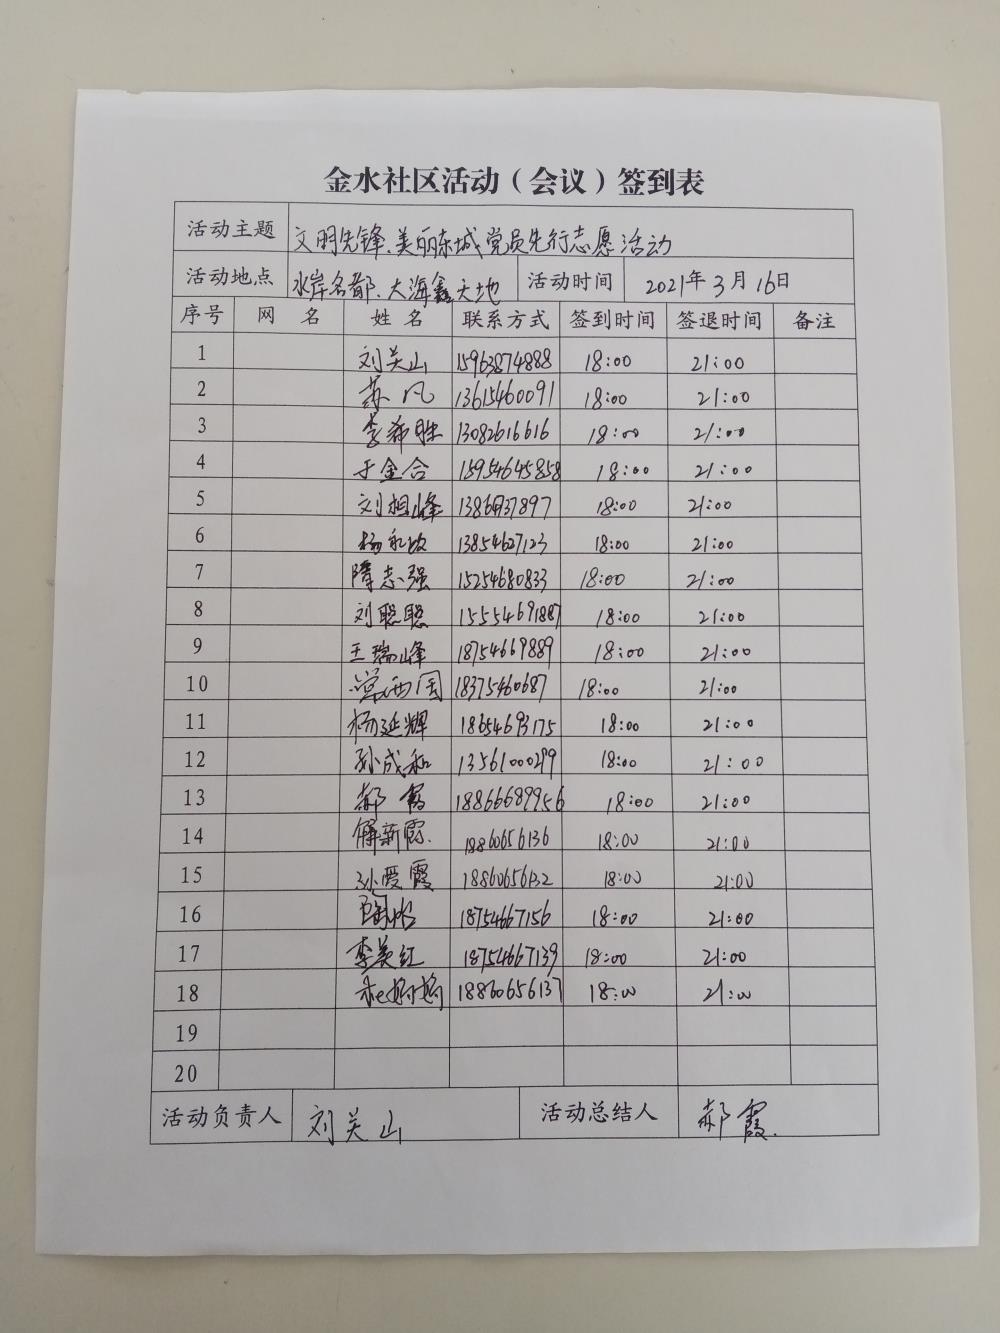 金水社区活动（会议）签到表
活动主题 文明先锋、美丽东城党员先行志愿活动
活动地点 水岸名都、大海鑫天地 活动时间 2021年3月16日
序号 网 名 姓 名 联系方式 签到时间 签退时间 备注
1 刘关山 15963874888 18:00 21:00
2 苏凡 13615460091 18:00 21:00
3 李希胜 13082616616 18:00 21:00
4 于金合 15954645858 18:00 21:00
5 刘相峰 18:00 21:00
6 13854627123 18:00 21:00
7 隋志强 15254680833 18:00 21:00
8 刘聪聪 15554691887 18:00 21:00
9 王瑞峰 18754669889 18:00 21:00
10 18375460687 18:00 21:00
11 杨延辉 18654693175 18:00 21:00
12 孙成和 13561000299 18:00 21:00
13 郝霞 18866689956 18:00 21:00
14 解新霞 18860656136 18:00 21:00
15 孙爱霞 18860656132 18:00 21:00
16 18754667156 18:00 21:00
17 李美红 18754667139 18:00 21:00
18 18860656137 18:00 21:00
19
20
活动负责人 刘关山 活动总结人 郝霞